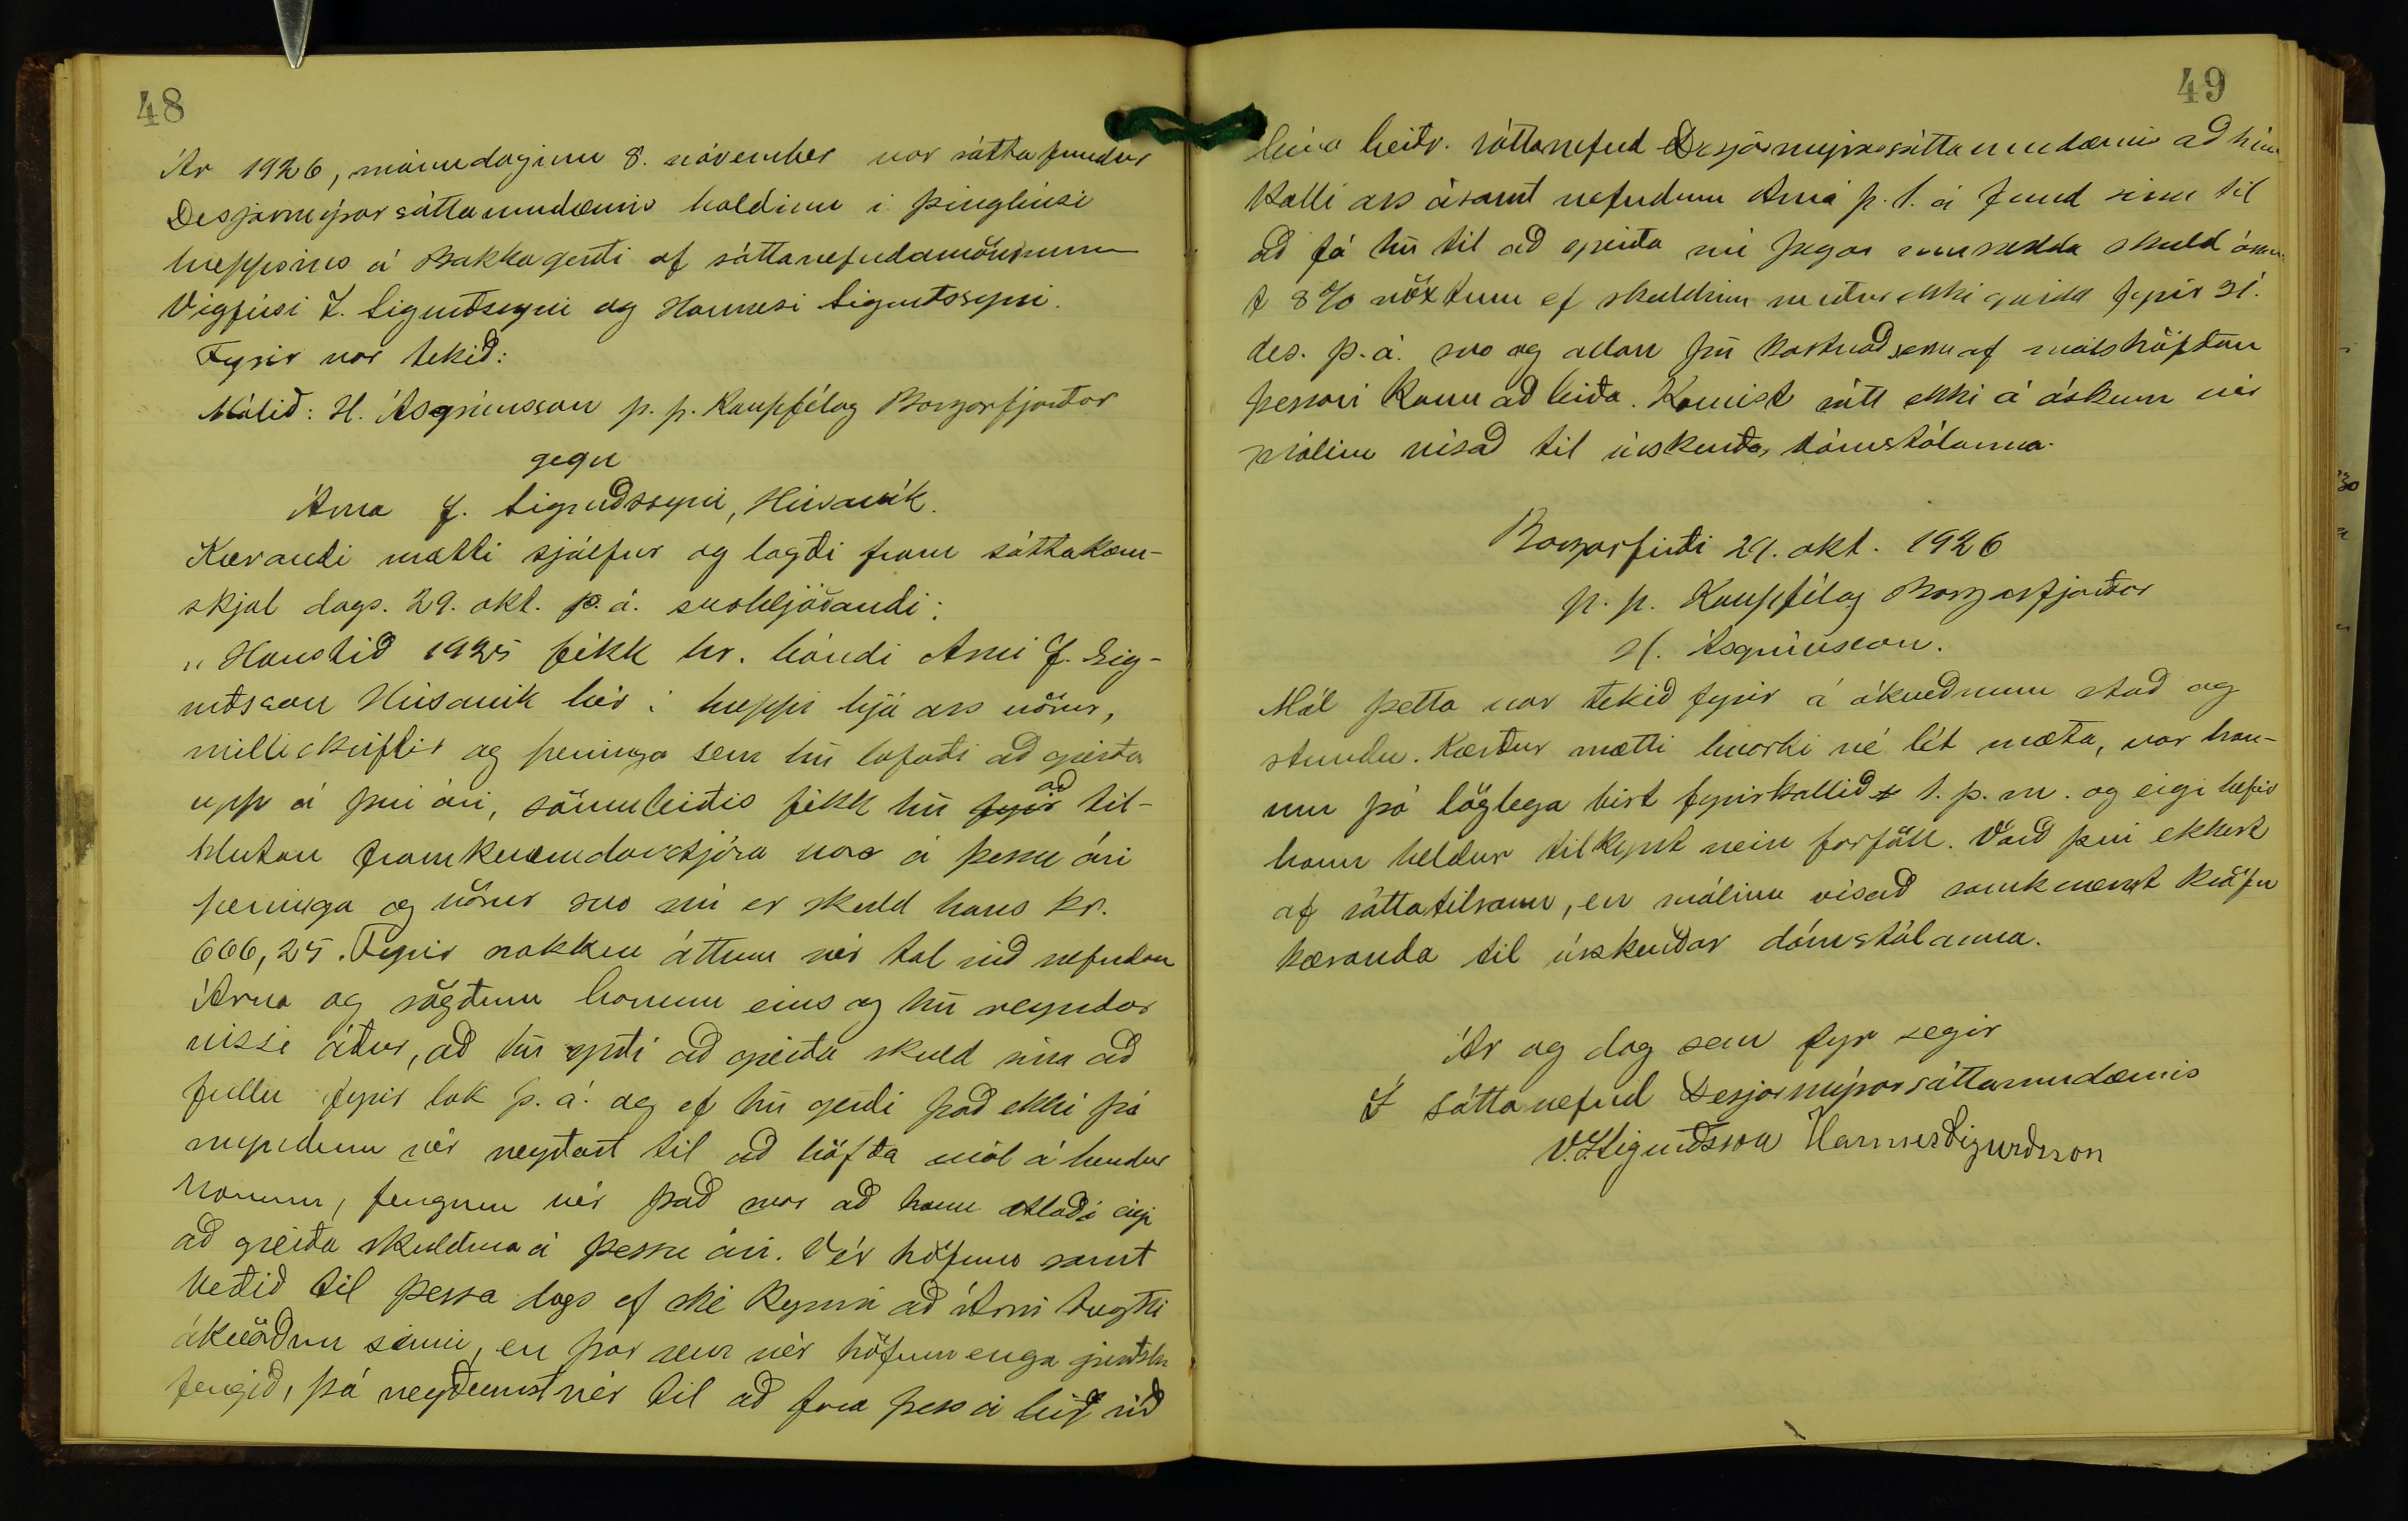 48
Ár 1926, mánudaginn 8. nóvember var sáttafundur
Desjarmýrarsáttaumdæmis haldinn í þinghúsi
hreppsins á Bakkagerði af sáttanefndamönnum
Vigfúsi I. Sigurðssyni og Hannesi Sigurðssyni.
Fyrir var tekið:
Málið: H. Ásgrímsson p. p. Kaupfélag Borgarfjarðar
gegn
Árna J. Sigurðssyni, Húsavík.
Kærandi mætti sjálfur og lagði fram sáttakæru-
skjal dags. 29. okt. þ. á. svohljóðandi:
„Haustið 1925 fékk hr. bóndi Árni J. Sig-
urðsson Húsavík hér í hreppi hjá oss vörur,
milliskriftir og peninga sem hn lofaði að greiða
upp á því ári, sömuleiðis fékk hn fyrir að til-
hlutan framkvæmdarstjóra vors á þessu ári
peninga og vörur svo nú er skuld hans kr.
666,25. Fyrir nokkru áttum vér tal við nefndan
Árna og sögðum honum eins og hn reyndar
vissi áður, að hn yrði að greiða skuld sína að
fullu fyrir lok þ. á. og ef hn gerði það ekki þá
myndum vér neyðast til að höfða mál á hendur
honum, fengum vér það svar að hann ætlaði eigi
að greiða skuldina á þessu ári. Vér höfum samt
beðið til þessa dags ef ske kynni að Árni breytti
ákvörðun sinni, en þar sem vér höfum enga greiðslu
fengið, þá neyðumst vér til að fara þess á leit við
49
hina heiðr. sáttanefnd Desjarmýrarsáttaumdæmis að hún
kalli oss ásamt nefndum Árna þ. 1. á fund sinn til
að fá hn til að greiða nú þegar umrædda skuld ásam-
t 8% vöxtum ef skuldin verður ekki greidd fyrir 31.
des. þ. á. svo og allan þn kostnað sem af málshöfðun
þessari kann að leiða. Komist sátt ekki á óskum vér
málinu vísað til úrskurðar dómstólanna.
Borgarfirði 29. okt. 1926
p. p. Kaupfélag Borgarfjarðar
H. Ásgrímsson.
Mál þetta var tekið fyrir á ákveðnum stað og
stundu. Kærður mætti hvorki né lét mæta, var hon-
um þó löglega birt fyrirkallið 1. þ. m. og eigi hefir
hann heldur tilkynt nein forföll. Varð því ekkert
af sáttatilraun, en málinu vísað samkvæmt kröfu
kæranda til úrskurðar dómstólanna.
Ár og dag sem fyr segir
Í sáttanefnd Desjarmýrarsáttaumdæmis
V. I. Sigurðsson Hannes Sigurðsson